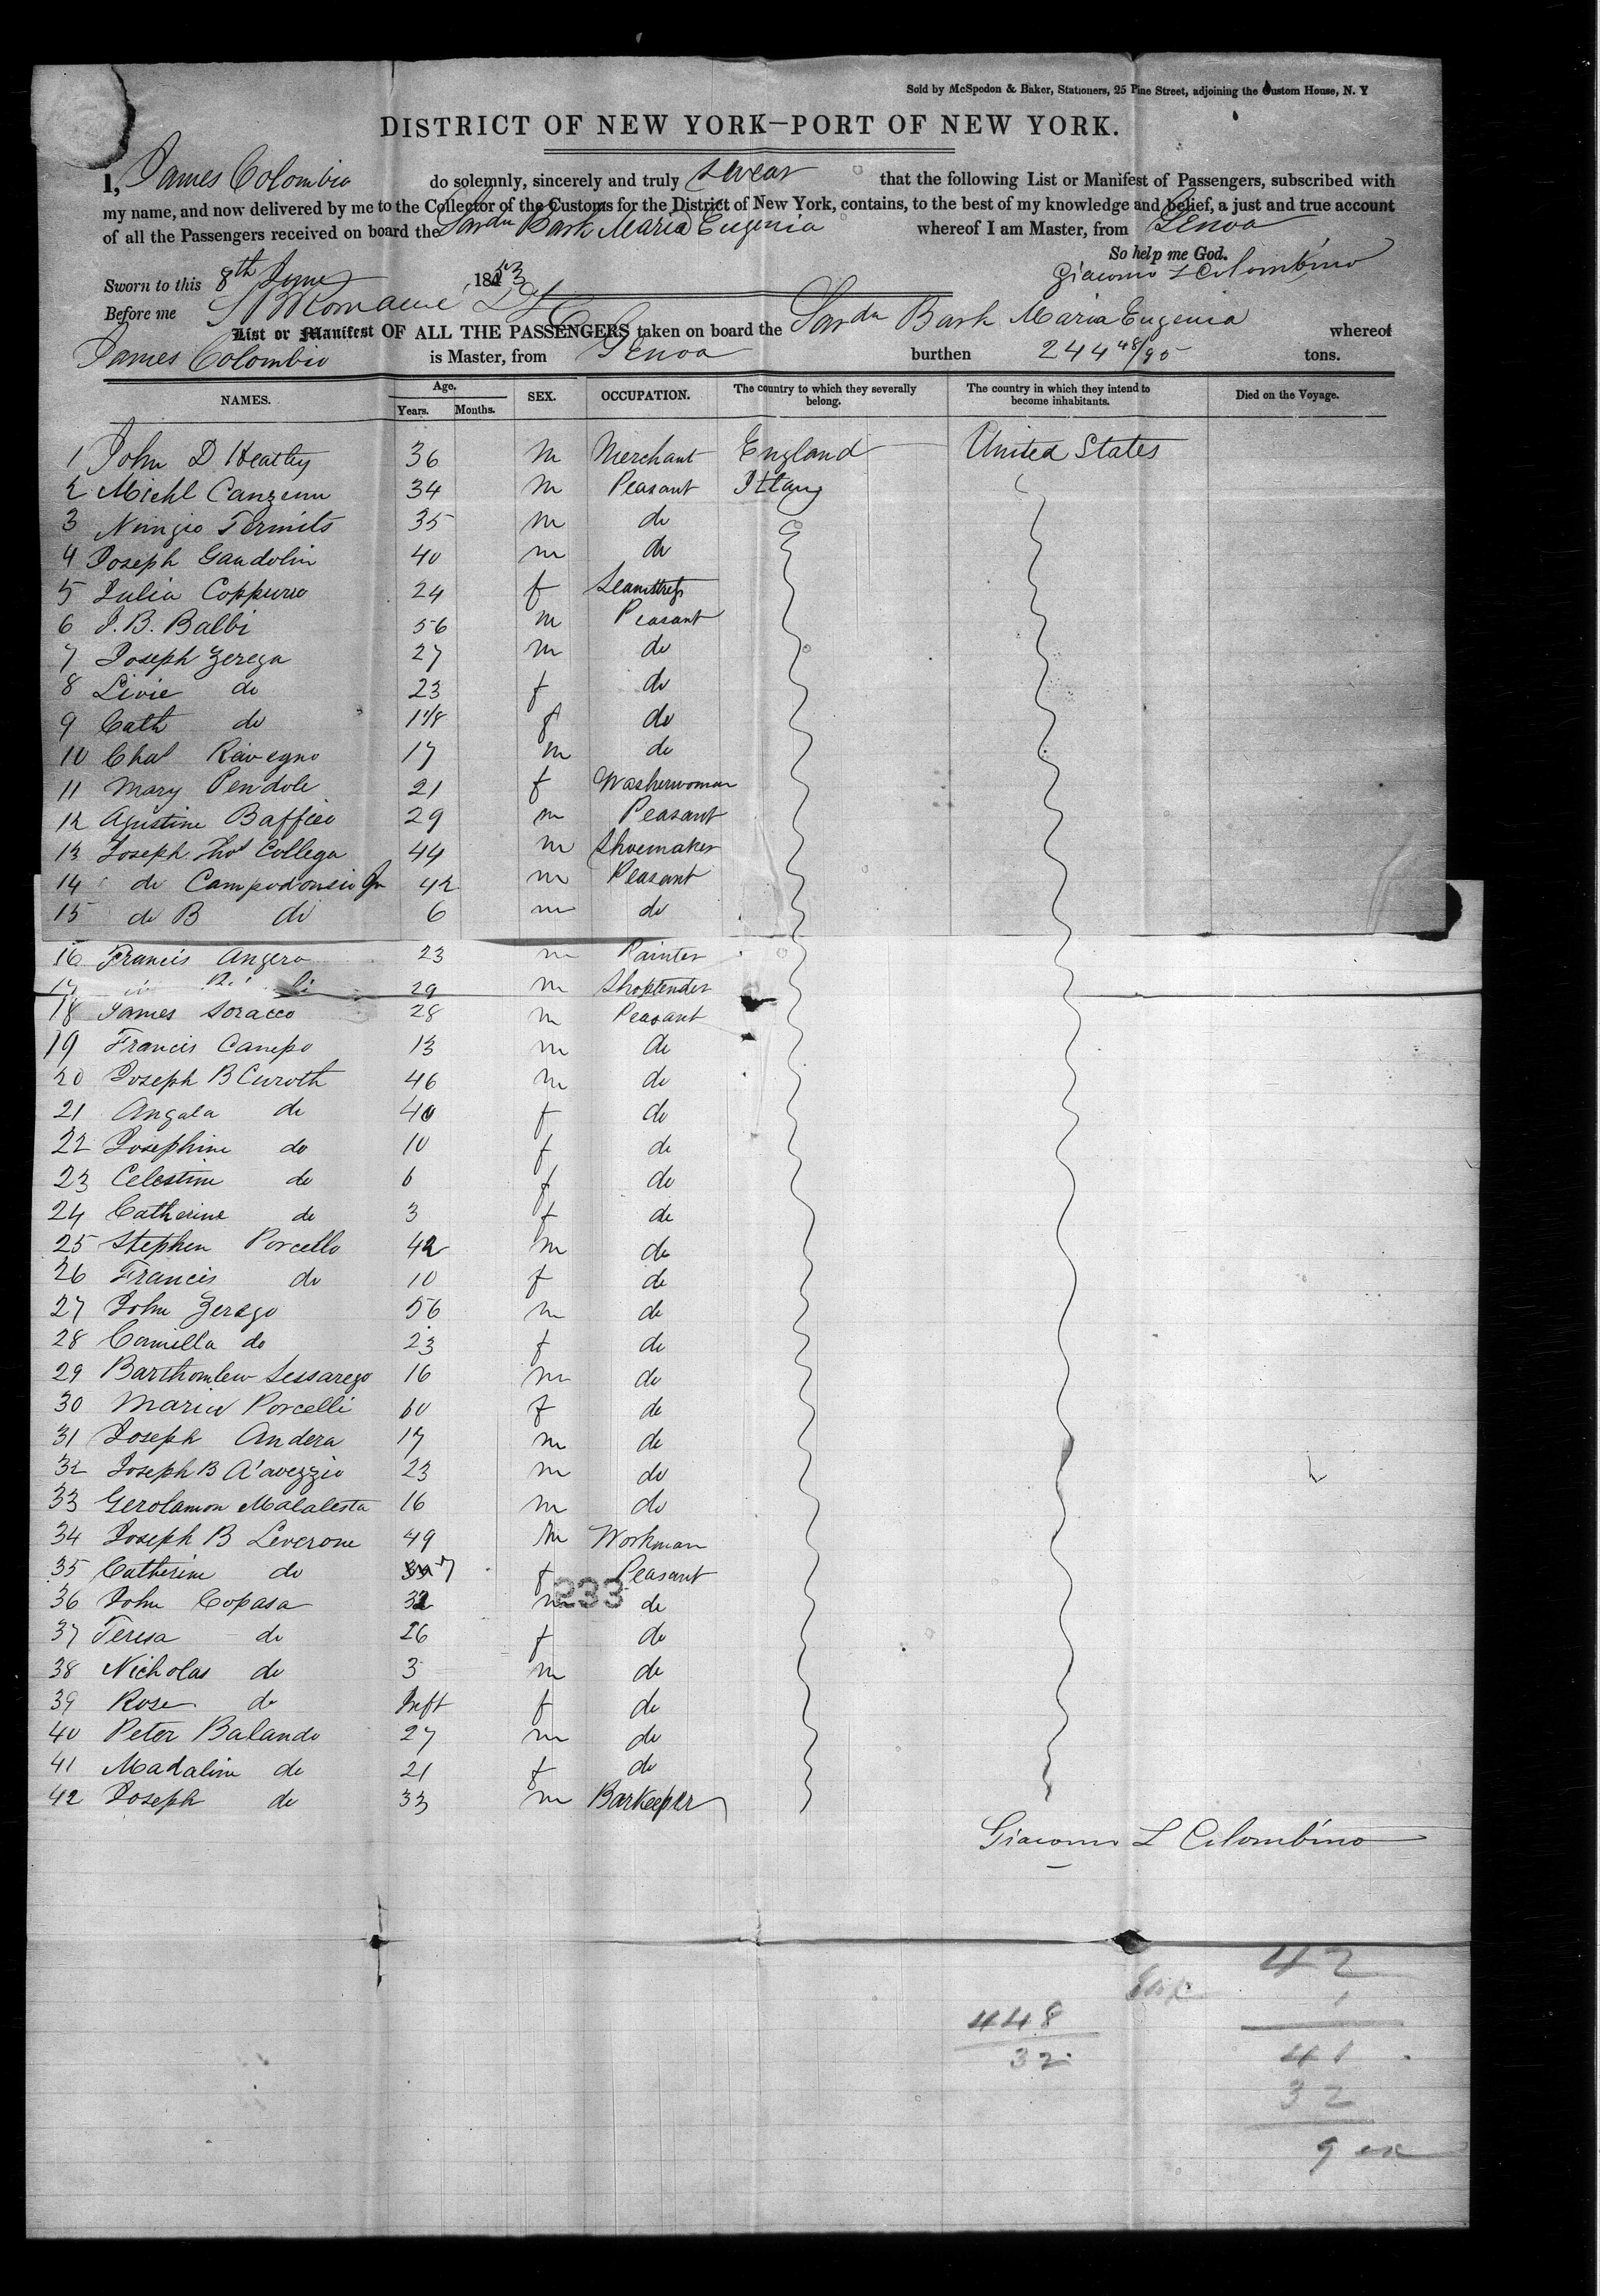 Sold by McSpedon & Baker, Stationers, 25 Pine Street, adjoining the Custom House, N. Y
DISTRICT OF NEW YORK—PORT OF NEW YORK.
I, James Colombio do solemnly, sincerely and truly swear that the following List or Manifest of Passengers, subscribed with
my name, and now delivered by me to the Collector of the Customs for the District of New York, contains, to the best of my knowledge and belief, a just and true account
of all the Passengers received on board the Sardn Bark Maria Eugenia whereof I am Master, from Genoa
So help me God.
Sworn to this 8th June 1853 Giacomo L Colombino
Before me
List or Manifest OF ALL THE PASSENGERS taken on board the Sardn Bark Maria Eugenia whereof
James Colombio is Master, from Genoa burthen 244 48/95 tons.
NAMES. Age. Years. Months. SEX. OCCUPATION. The country to which they severally belong. The country in which they intend to become inhabitants. Died on the Voyage.
1 John D Heatley 36 m Merchant England United States
2 Michl Canzenn 34 m Peasant Ittaly
3 Nungio Termits 35 m do
4 Joseph Gandolin 40 m do
5 Julia Coppuro 24 f Seamstress
6 J. B. Balbi 56 m Peasant
7 Joseph Zerega 27 m do
8 Livie do 23 f do
9 Cath do 1 1/8 f do
10 Chas Ravegno 17 m do
11 Mary Pendole 21 f Washerwoman
12 Agustine Baffico 29 m Peasant
13 Joseph Thos Collega 44 m Shoemaker
14 do Campodonsio Jn 42 m Peasant
15 do B do 6 m do
16 Francis Angera 23 m Painter
17 29 m Shoptender
18 James Soracco 28 m Peasant
19 Francis Canepo 13 m do
20 Joseph B Curoth 46 m do
21 Angala do 40 f do
22 Josephine do 10 f do
23 Celestine do 6 f do
24 Catherine do 3 f do
25 Stephen Porcello 42 m do
26 Francis do 10 f do
27 John Zerego 56 m do
28 Camilla do 23 f do
29 Barthomlew Sessarego 16 m do
30 Maria Porcelli 60 f do
31 Joseph Andera 17 m do
32 Joseph B A'avezzio 23 m do
33 Gerolamon Malalesta 16 m do
34 Joseph B Leverone 49 m Workman
35 Catherine do 7 f Peasant
233
36 John Copasa 32 m do
37 Teresa do 26 f do
38 Nicholas do 3 m do
39 Rose do Inft f do
40 Peter Balando 27 m do
41 Madaline do 21 f do
42 Joseph do 33 m Barkeeper
Giacomo L Colombino
42
1
448
32
41
32
9